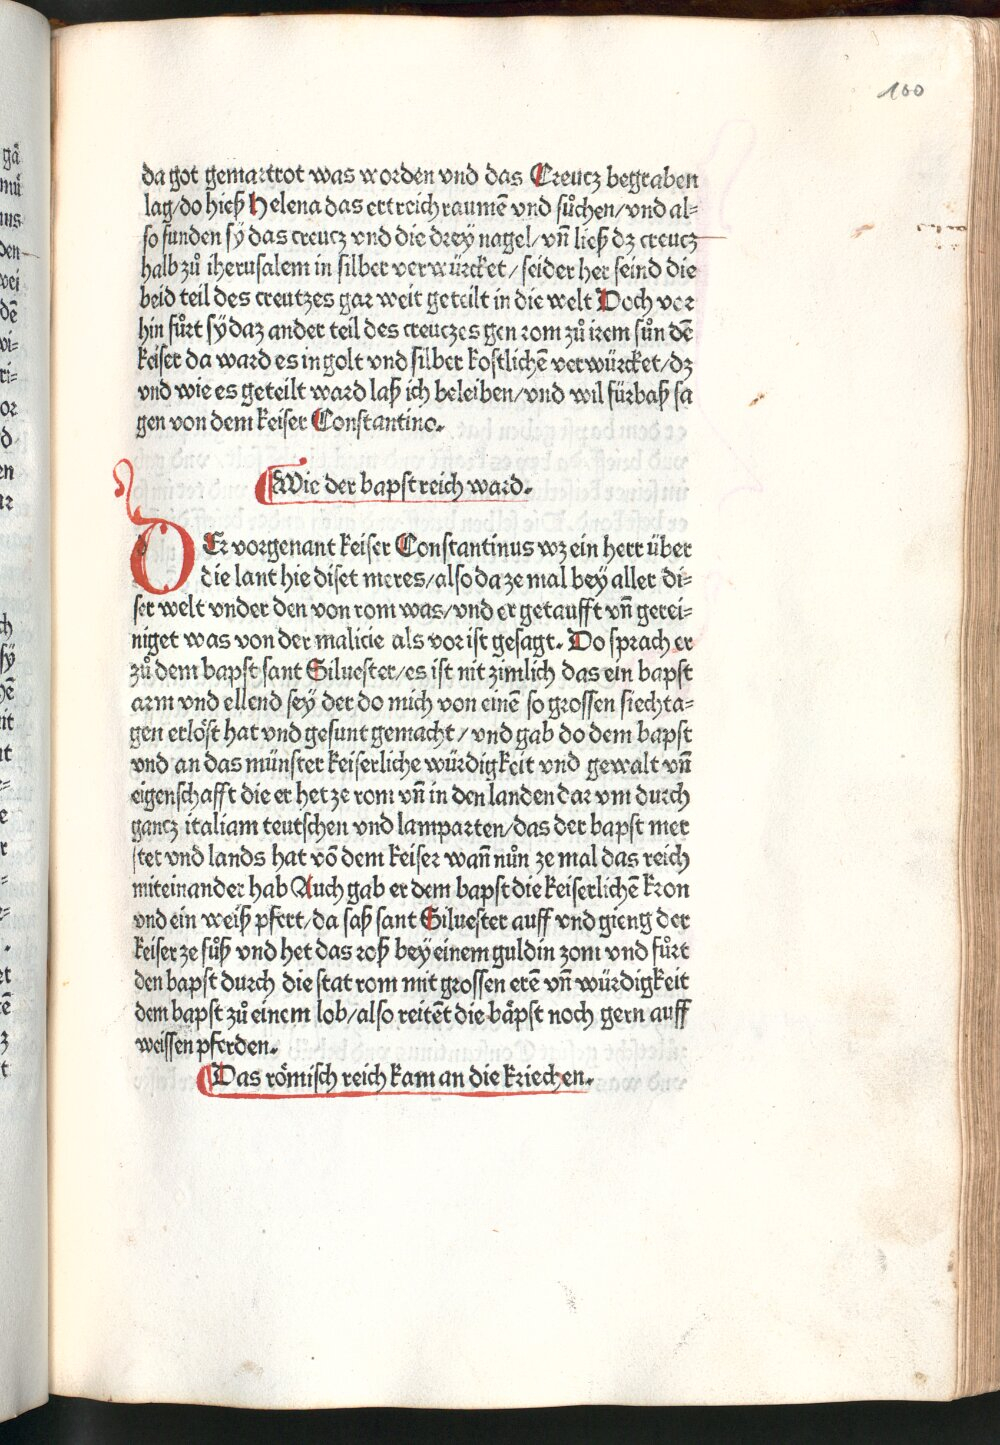 100
da got gemartrot was worden vnd das Creucz begraben
lag/do hieß Helena das ertreich raumē vnd sůchen/vnd al-
so funden sÿ das creucz vnd die dreÿ nagel/vn̄ ließ dz creucz
halb zů iherusalem in silber verwürcket/seider her seind die
beid teil des creutzes gar weit geteilt in die welt Doch vor
hin fůrt sÿ daz ander teil des creuczes gen rom zů irem sůn dē
keiser da ward es in golt vnd silber kostlichē verwürcket/dz
vnd wie es geteilt ward laß ich beleiben/vnd wil fürbaß sa
gen von dem keiser Constantino.
Wie der bapst reich ward.
DEr vorgenant keiser Constantinus wz ein herr über
die lant hie diset meres/also da ze mal beÿ aller di-
ser welt vnder den von rom was/vnd er getaufft vn̄ gerei-
niget was von der malicie als vor ist gesagt. Do sprach er
zů dem bapst sant Siluester/es ist nit zimlich das ein bapst
arm vnd ellend seÿ der do mich von einē so grossen siechta-
gen erlöst hat vnd gesunt gemacht/vnd gab do dem bapst
vnd an das münster keiserliche würdigkeit vnd gewalt vn̄
eigenschafft die er het ze rom vn̄ in den landen dar vm durch
gancz italiam teutschen vnd lamparten/das der bapst mer
stet vnd lands hat vō dem keiser wan̄ nůn ze mal das reich
miteinander hab Auch gab er dem bapst die keiserlichē kron
vnd ein weiß pfert/da saß sant Siluester auff vnd gieng der
keiser ze fůß vnd het das roß beÿ einem guldin zom vnd fůrt
den bapst durch die stat rom mit grossen erē vn̄ würdigkeit
dem bapst zů einem lob/also reitēt die bäpst noch gern auff
weissen pferden.
Das römisch reich kam an die kriechen.